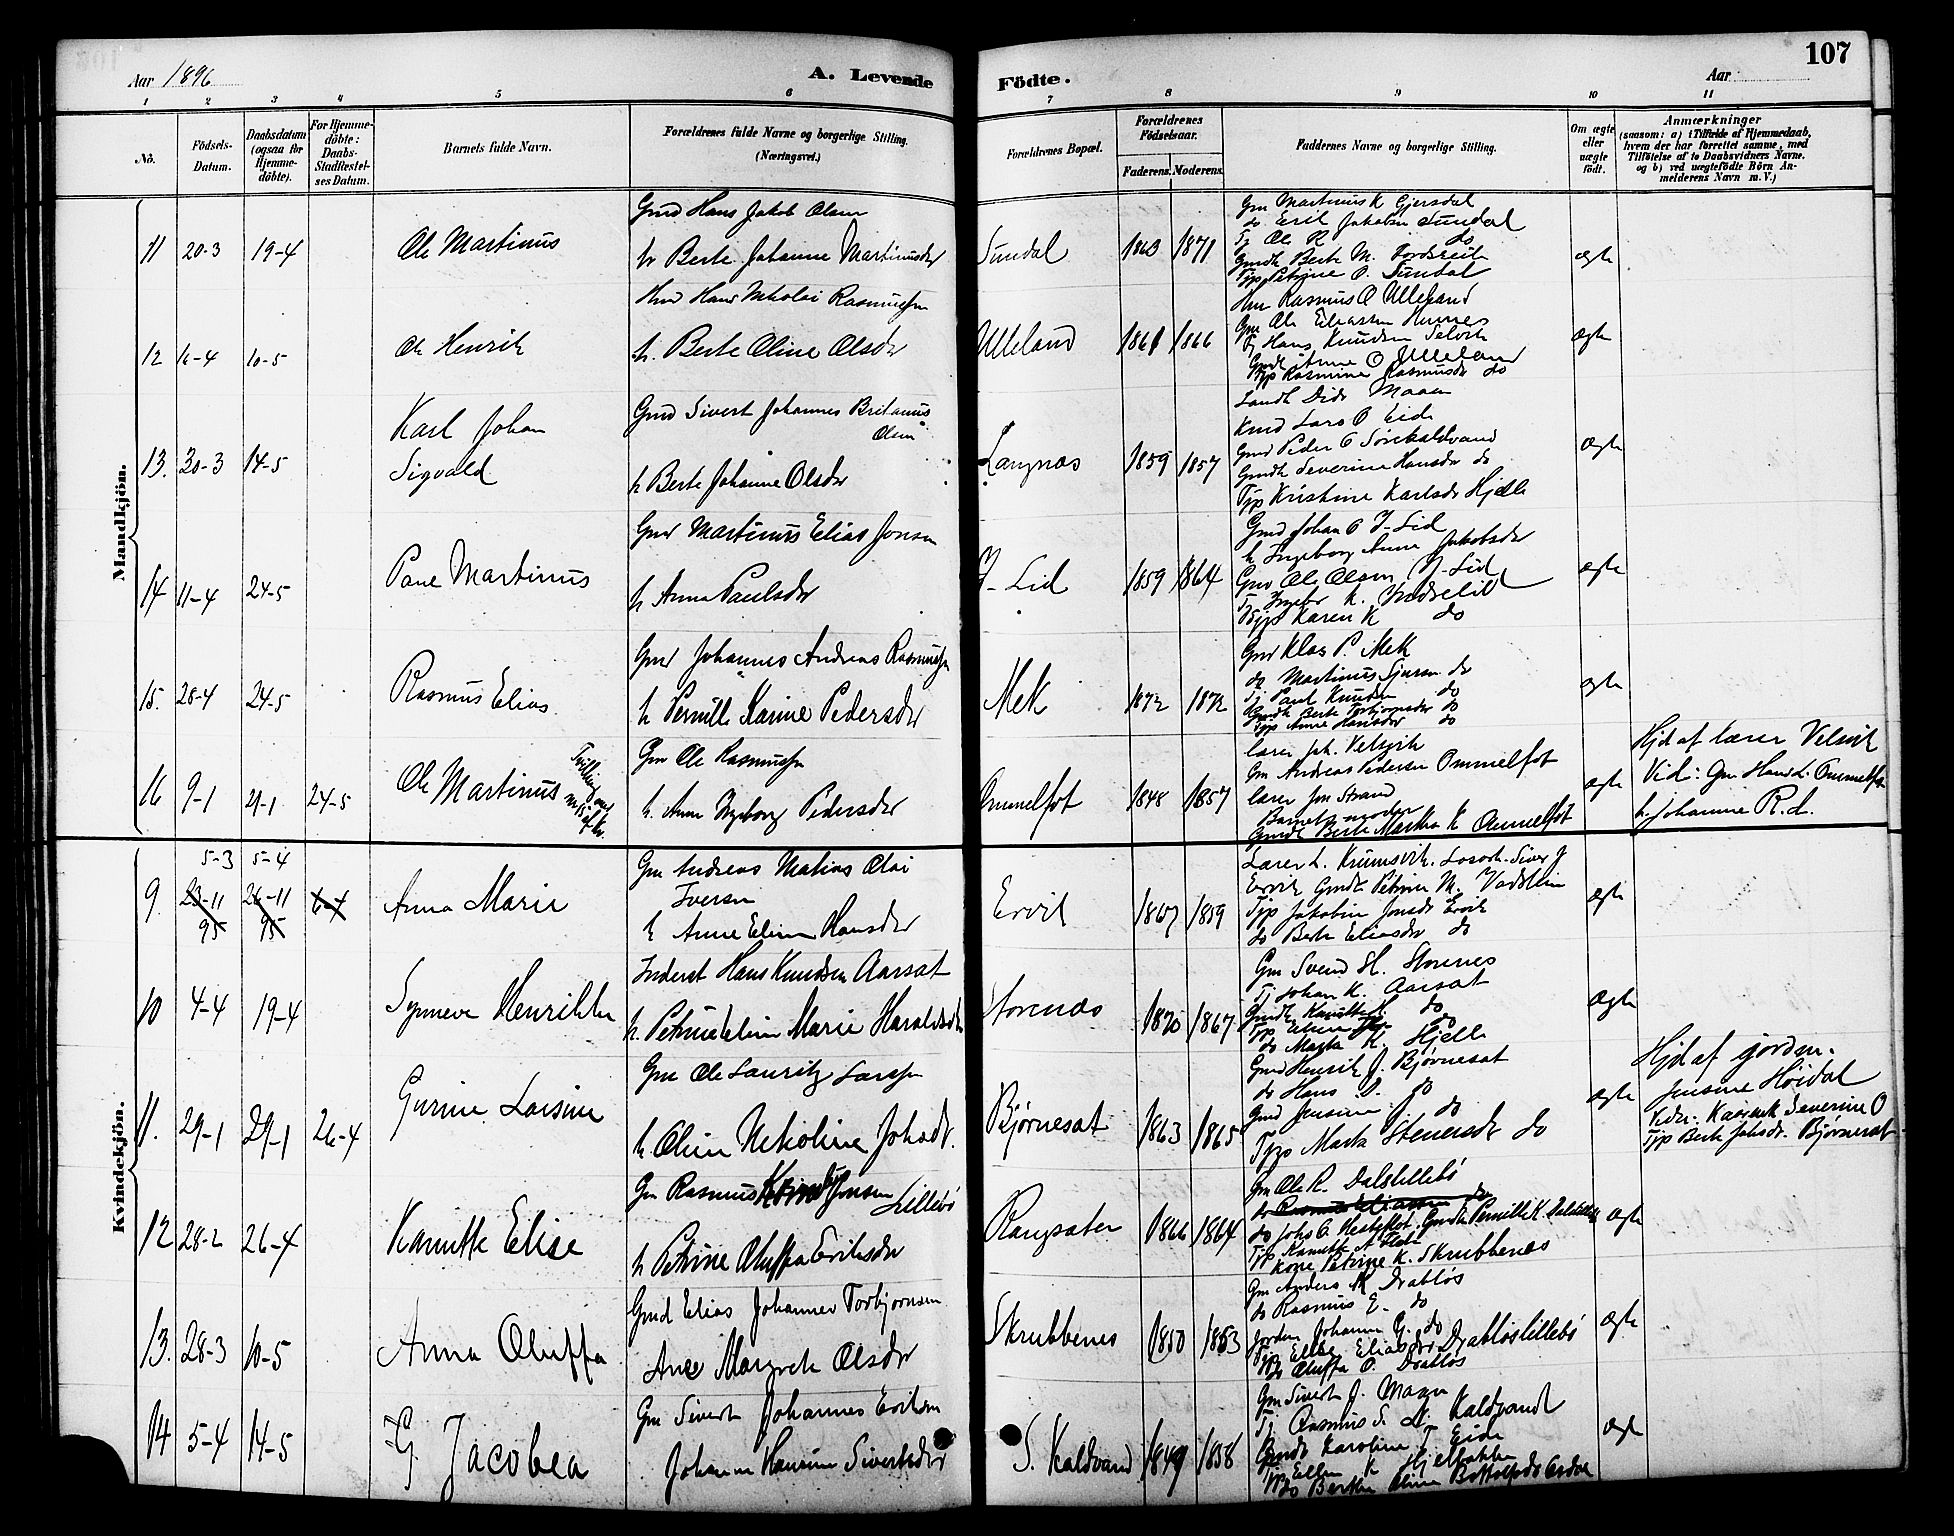 107
Aar 1896
A. Levende
Födte.
Aar
1 2 3 4 5 6 7 8 9 10 11
No.
Födsels-Datum.
Daabsdatum (ogsaa for Hjemme-döbte).
For Hjemme-döbte: Daabs-Stadfæstel-ses Datum.
Barnets fulde Navn.
Forældrenes fulde Navne og borgerlige Stilling. (Næringsvei.)
Forældrenes Bopæl.
Forældrenes Födselsaar.
Faderens. Moderens.
Faddernes Navne og borgerlige Stilling.
Om ægte eller uægte födt.
Anmærkninger
(saasom: a) i Tilfælde af Hjemmedaab, hvem der har forrettet samme, med Tilföielse af to Daabsvidners Navne. og b) ved uægtefödte Börn An-melderens Navn m. V.)
Mandkjön.
11 20-3 19-4
Ole Martinus
Gmd Hans Jakob Olsen
h Berte Johanne Martinusdr
Sundal 1863 1871
Gm Martinus K Gjersdal
do Erik Jakobsen Sundal
Tj Ole R do
Gmdk Berte M.
Tjp Petrine O. Sundal
ægte
12 16-4 10-5
Ole Henrik
Hans Nikolai Rasmussen
h. Berte Oline Olsdr
Ulleland 1861 1866
Rasmus O Ulleland
Gm Ole Eliassen
Tj Hans Knudsen
Gmdk Anne O Ulleland
Tjp Rasmine Rasmusdr do
ægte
13. 30-3 14-5
Karl Johan
Sigvald
Gmd Sivert Johannes Britanus
Olsen
h Berte Johanne Olsdr
Langnæs 1859 1857
Maan
Lars O Eide
Gmd Peder O
Gmdk Severine Hansdr do
Tjp Kristine Karlsdr Hjelle
ægte
14 11-4 24-5
Paul Martinus
Gmd Martinus Elias Jonsen
h Anna Paulsdr
Y-Lid 1859 1864
Gmd Johan O Y-Lid
h. Ingeborg Anne Jakobsdr
Gmd Ole Olsen Y-Lid
K. Indrelid
Tjp Karen K do
ægte
15. 28-4 24-5
Rasmus Elias
Gmd Johannes Andreas Rasmussen
h Pernille Karine Pedersdr
Mek 1872 1872
Gmd Klas P. Mek
do Martinus Sjursen do
Tj. Paul Knudsen do
Gmdk Berte Torbjørnsdr do
Tjp Anne Hansdr do
ægte
16 9-1 29-1 24-5
Ole Martinus
Gm Ole Rasmussen
h. Anne Ingeborg Pedersdr
Ommelfot 1848 1857
lærer Joh. Velsvik
Gm Andreas Pedersen Ommelfot
lærer Jon Strand
Barnets moder
Gmdk Berte Martha K Ommelfot
ægte
Hjd af lærer Velsvik
Vid: Gm Hans L. Ommelfot
h. Johanne R.d.
Kvindekjön.
5-3 5-4
9. 23-11 26-11 6-4
95 95
Anna Marie
Gm Andreas Matias Olai
Iversen
h Anne Elina Hansdr
Ervik 1867 1859
Lærer L. Krumsvik. Losoldt. Siver J
Ervik Gmdk Petrine M. Vadstein
Tjp Jakobine Jonsdr Ervik
do Berte Eliasdr do
ægte
10 4-4 19-4
Synneve Henrikke
Inderst Hans Knudsen Aarsæt
h. Marie Haraldsdr
Storenæs 1870 1867
Gm Svend H. Storenes
Tj. Johan K. Aarsæt
do
do
do Marta K. Hjelle
ægte
11. 29-1 29-1 26-4
Gurine Lovise
Gm Ole Lauritz Larssen
h Oline Nikoline Johsdr.
Bjørnesæt 1863 1865
Gmd Henrik J. Bjørnesæt
do Hans O. do
Gmd Jensine do
Tjp Marta Steuersdr do
ægte
Hjd af jordm.
Jensine Høidal
Vidr: Severine O
Tjp Berte Johsdr. Bjørnesæt
12 28-2 26-4
Kanutte Elise
Gm Rasmus Jonsen
Lillebö
h Petrine Oluffa Eriksdr
Rangsæter 1866 1864
Gm Ole R. Dalslillebö
do Rasmus Eliassen do
do Johs O. Gmdk Pernille K. Dalslillebö
Tjp Kanutte A
Kone Petrine K. Skrubbenæs
ægte
13. 28-3 10-5
Anna Oluffa
Gmd Elias Johannes Torbjørnsen
Ane Margrete Olsdr
Skrubbenes 1850 1853
Gm Anders K Drabløs
do Rasmus E. do
Jordm Johanne G. do
Tjp Eliasdr Drabløslillebö
do Oluffa O. Drabløs
ægte
14 5-4 14-5
G. Jacobea
Gm Sivert Johannes Eriksen
Johanne Hansine Sivertsdr
S. Kaldvand 1849 1858
Gm Sivert J. Maan
Tj. Rasmus S. N. Kaldvandt
Gmdk Karoline T Eide
Tjp Ellen K Hjelbakken
do Berthe Oline
ægte